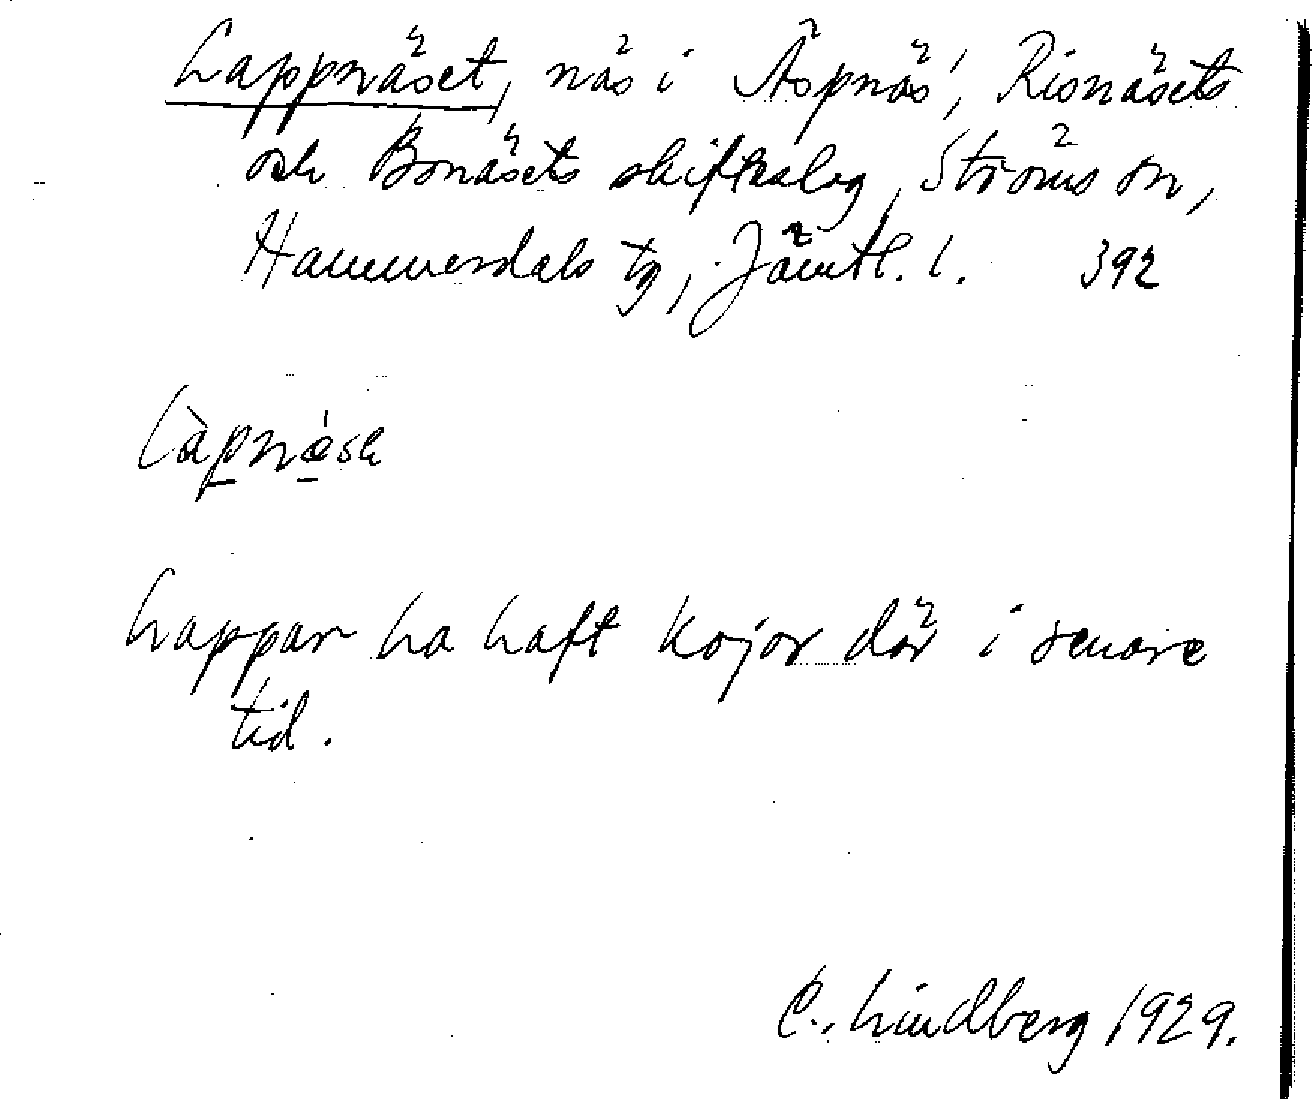 Lappnäset, näs i Äspnäs', Risnäsets
och Bonäsets skifteslag, Ströms sn,
Hammerdals tg, Jämtl. l. 392
Làpnǽsə
Lappar ha haft kojor där i senare
tid.
C. Lindberg 1929.